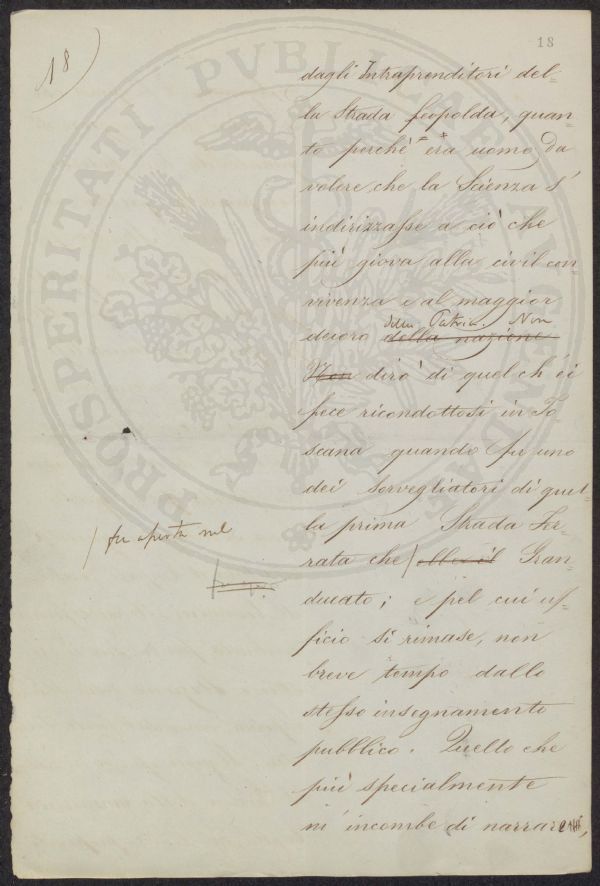 18
18
dagli Intraprenditori del=
la Strada Leopolda, quan=
to perché era uomo da
volere che la Scienza s'
indirizzasse a ciò che
più giova alla civil con=
vivenza e al maggior
della Patria. Non
decoro della nazione
Non dirò di quel ch'ei
fece ricondottosi in To=
scana quando fu uno
dei sorvegliatori di quel=
la prima Strada Fer=
rata che / ebbe il Gran=
/ fu aperta nel
ducato; e pel cui uf=
ficio si rimase, non
breve tempo dallo
stesso insegnamento
pubblico. Quello che
più specialmente
m'incombe di narrare,
PROSPERITATI PVBLICAE